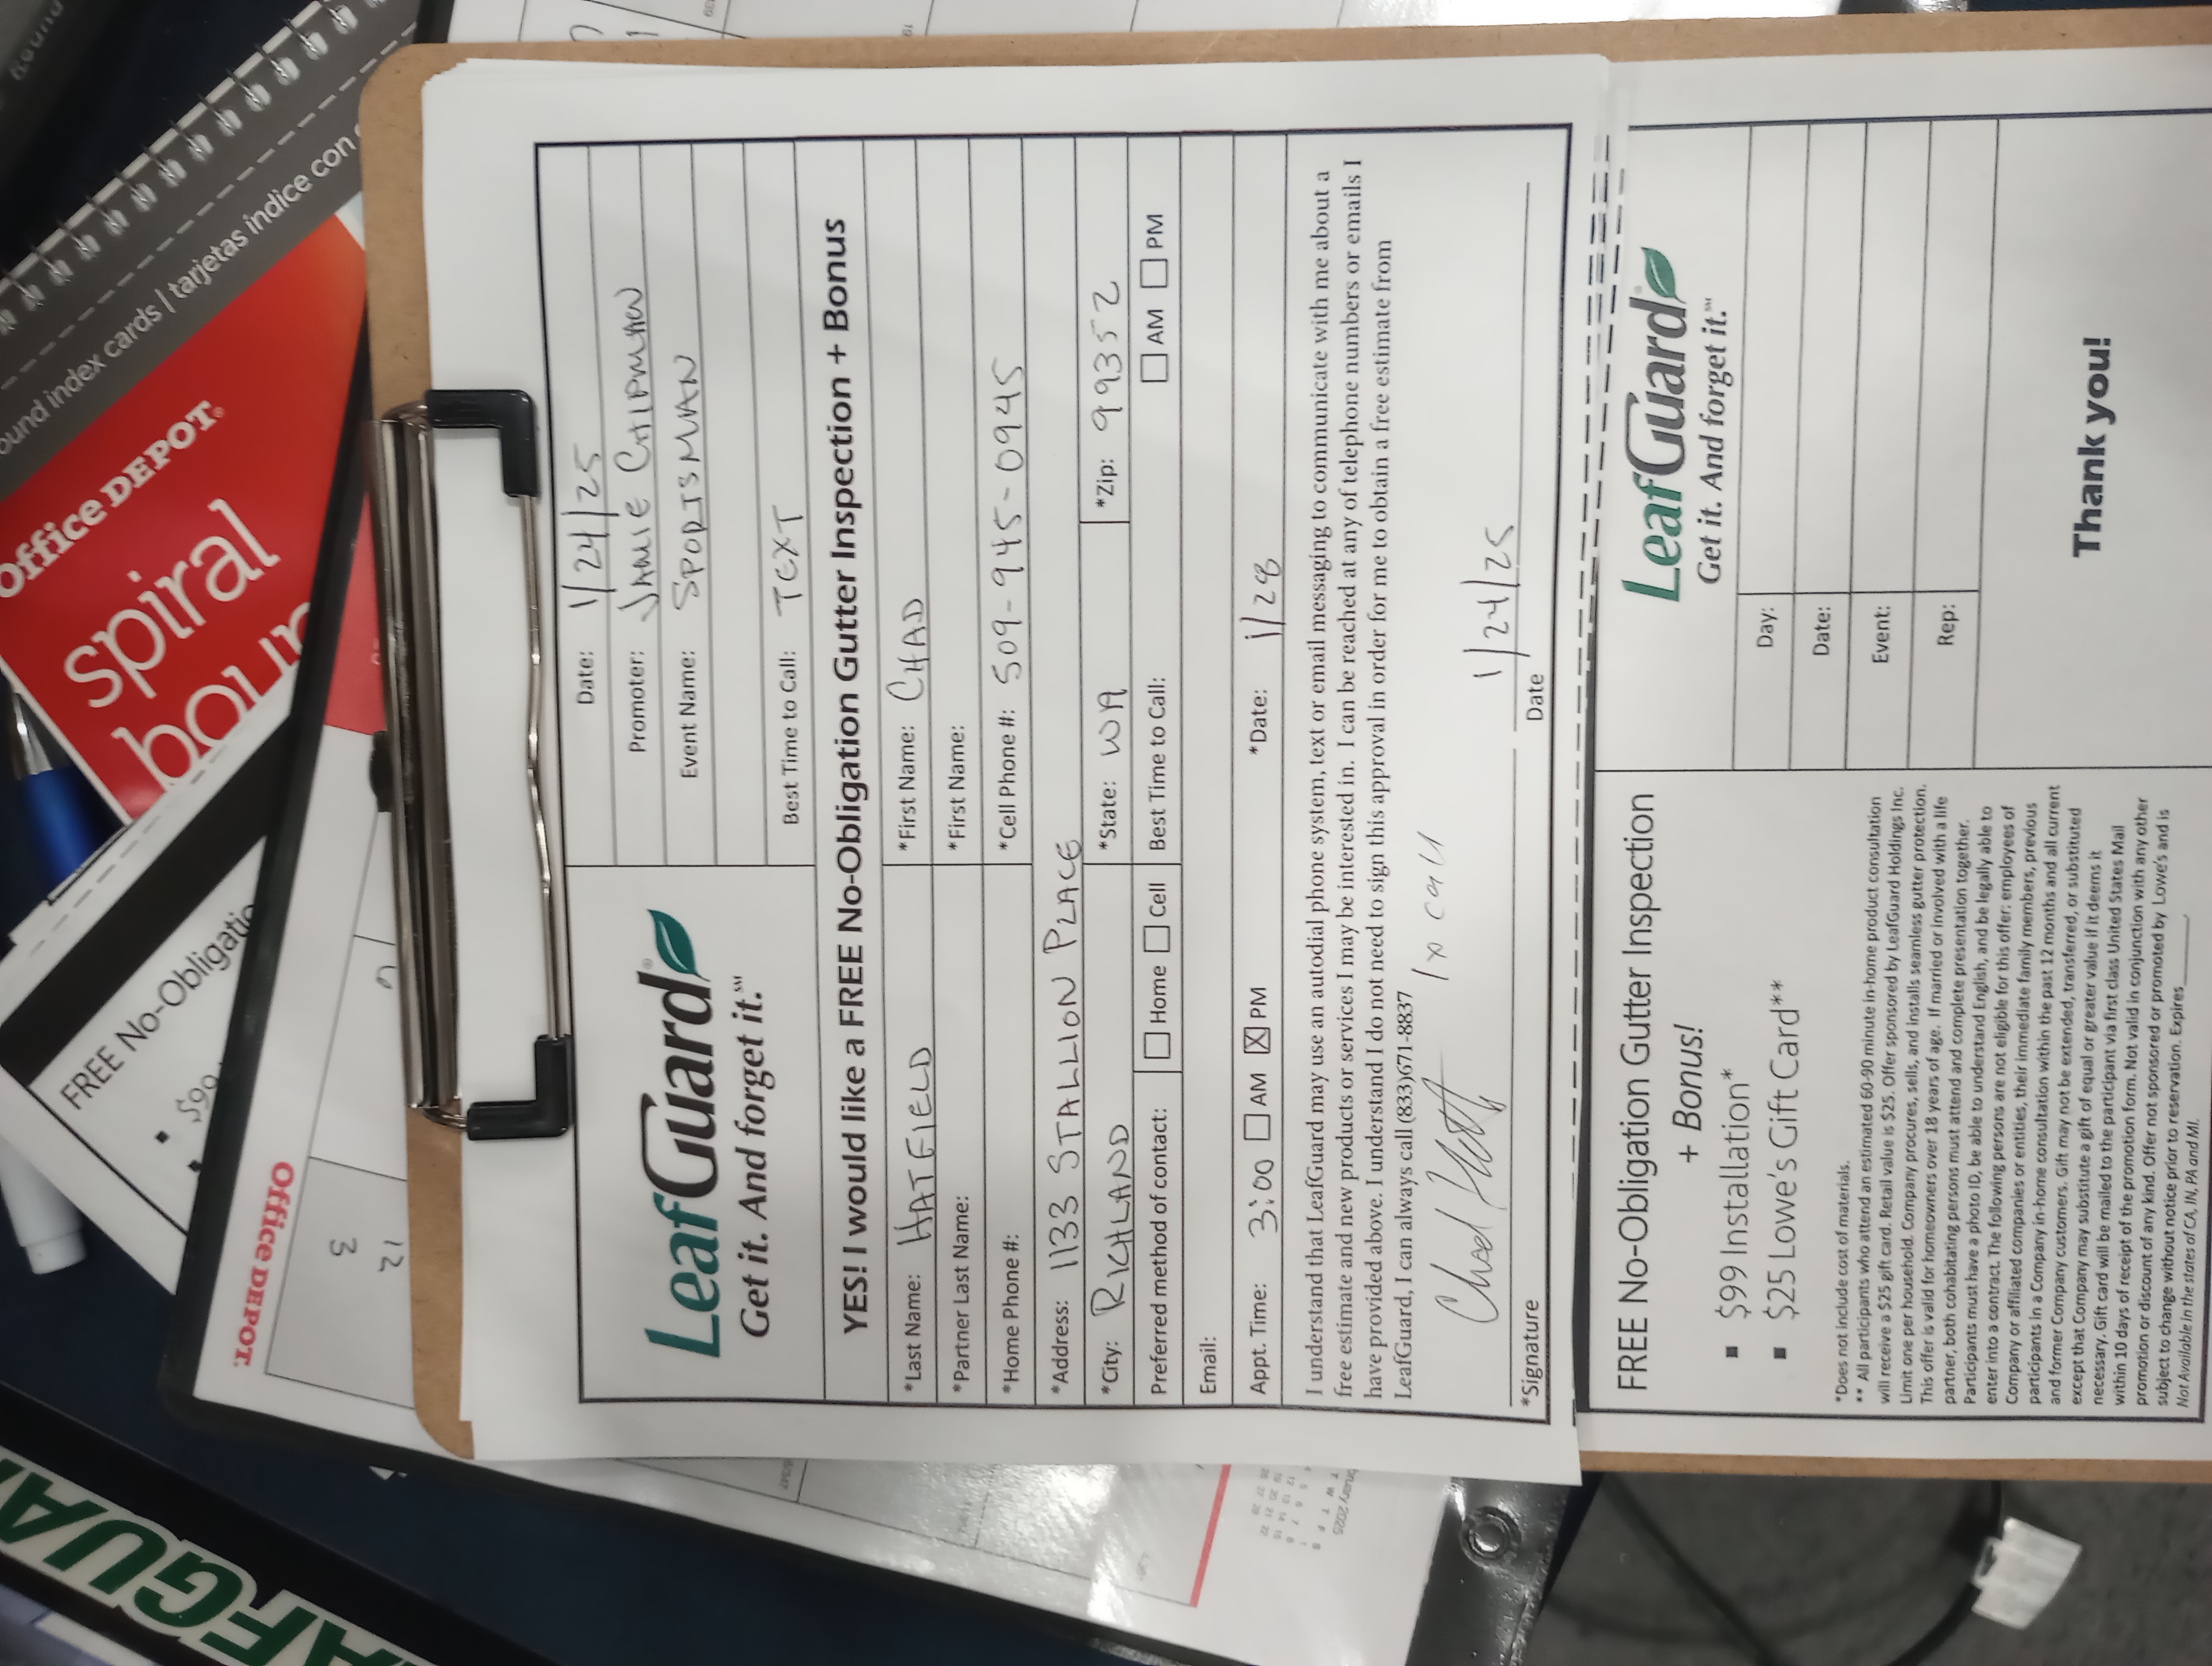 AFGUA
FREE No-Obligatio
$99
Office DEPOT.
spiral
boun
ound index cards | tarjetas índice con
Office DEPOT.
3
12
Date: 1/24/25
Promoter: JAMIE CHIPMAN
Event Name: SPORTSMAN
Best Time to Call: TEXT
LeafGuard®
Get it. And forget it.℠
YES! I would like a FREE No-Obligation Gutter Inspection + Bonus
*Last Name: HATFIELD *First Name: CHAD
*Partner Last Name: *First Name:
*Home Phone #: *Cell Phone #: 509-945-0945
*Address: 1133 STALLION PLACE
*City: RICHLAND *State: WA *Zip: 99352
Preferred method of contact: ☐ Home ☐ Cell Best Time to Call: ☐ AM ☐ PM
Email:
Appt. Time: 3:00 ☐ AM ☒ PM *Date: 1/28
I understand that LeafGuard may use an autodial phone system, text or email messaging to communicate with me about a
free estimate and new products or services I may be interested in. I can be reached at any of telephone numbers or emails I
have provided above. I understand I do not need to sign this approval in order for me to obtain a free estimate from
LeafGuard, I can always call (833)671-8837
1x call
Chad
1/24/25
*Signature Date
FREE No-Obligation Gutter Inspection
+ Bonus!
▪ $99 Installation*
▪ $25 Lowe's Gift Card**
*Does not include cost of materials.
** All participants who attend an estimated 60-90 minute in-home product consultation
will receive a $25 gift card. Retail value is $25. Offer sponsored by LeafGuard Holdings Inc.
Limit one per household. Company procures, sells, and installs seamless gutter protection.
This offer is valid for homeowners over 18 years of age. If married or involved with a life
partner, both cohabitating persons must attend and complete presentation together.
Participants must have a photo ID, be able to understand English, and be legally able to
enter into a contract. The following persons are not eligible for this offer: employees of
Company or affiliated companies or entities, their immediate family members, previous
participants in a Company in-home consultation within the past 12 months and all current
and former Company customers. Gift may not be extended, transferred, or substituted
except that Company may substitute a gift of equal or greater value if it deems it
necessary. Gift card will be mailed to the participant via first class United States Mail
within 10 days of receipt of the promotion form. Not valid in conjunction with any other
promotion or discount of any kind. Offer not sponsored or promoted by Lowe's and is
subject to change without notice prior to reservation. Expires________.
Not Available in the states of CA, IN, PA and MI.
LeafGuard
Get it. And forget it.℠
Day:
Date:
Event:
Rep:
Thank you!